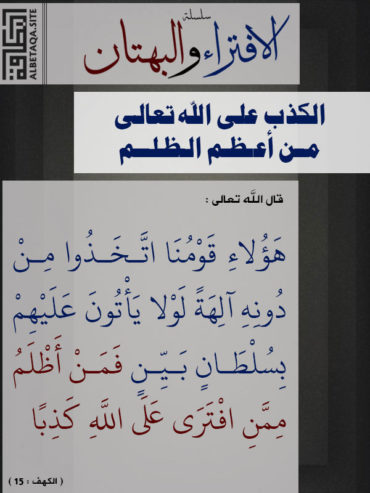 سلسلة
الافتراء والبهتان
البطاقة
ALBETAQA.SITE
الكذب على الله تعالى
مـن أعـظـم الـظلـــم
قال اللَّه تعالى :
هَؤُلَاءِ قَوْمُنَا اتَّخَذُوا مِنْ
دُونِهِ آلِهَةً لَوْلَا يَأْتُونَ عَلَيْهِمْ
بِسُلْطَانٍ بَيِّنٍ فَمَنْ أَظْلَمُ
مِمَّنِ افْتَرَى عَلَى اللَّهِ كَذِبًا
( الكهف : 15 )